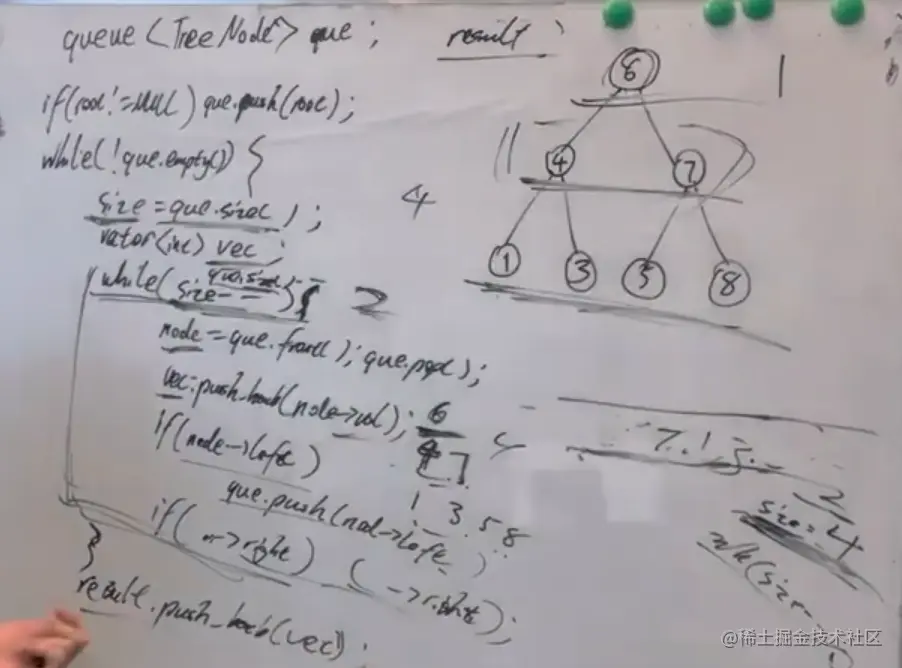 queue<TreeNode> que; result
if(root!=NULL) que.push(root);
while(!que.empty()) {
size=que.size();
vector(int) vec;
que.size
while(size--){ 2
node=que.front(); que.pop();
vec.push_back(node->val);
if(node->left)
que.push(node->left)
if( n->right) ( ->right);
}
result.push_back(vec);
6
4 7
1 3 5 8
6
4 7
1 3 5 8
4
7.1.3.
size=4
@稀土掘金技术社区